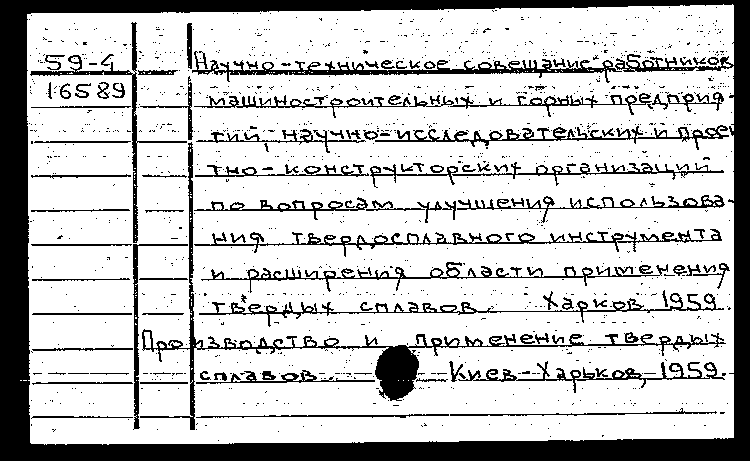 59-4
16589
Научно-техническое совещание работников
машиностроительных и горных предприя-
тий, научно-исследовательских и проек
тно-конструкторских организаций
по вопросам улучшения использова-
ния твердосплавного инструмента
и расширения области применения
твердых сплавов. Харков, 1959.
Производство и применение твердых
сплавов. Киев-Харьков, 1959.